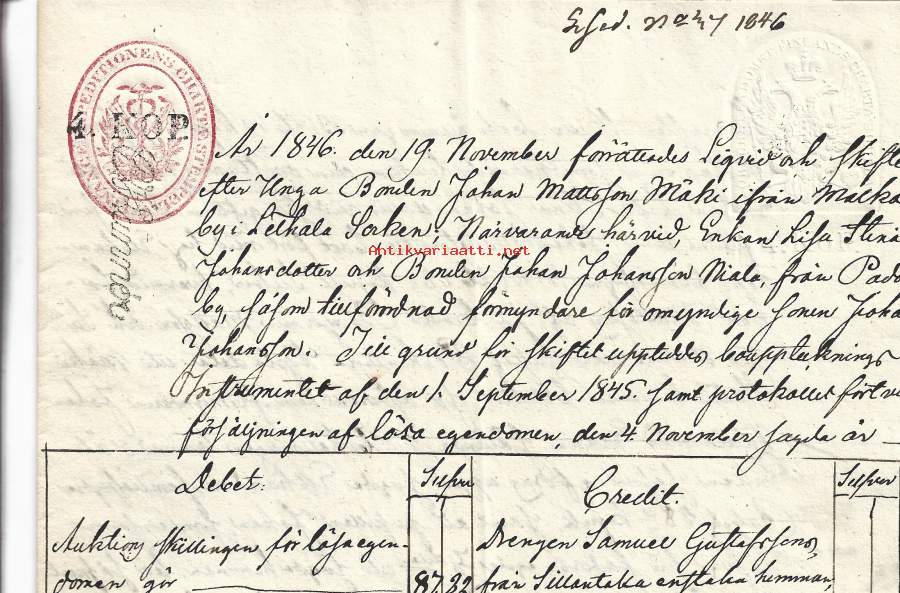 1846
4. KOP.
År 1846. den 19. November förrättades Liqvid och skifte
efter Unga Bonden Johan Mattsson Mäki ifrån
by i Lethala Socken. Närvarande härvid, Enkan Lisa Stina
Antikvariaatti.net
Johansdotter och Bonden Johan Johansson Mala, från
by, såsom tillförordnad förmyndare för omyndige sonen Joha
Johansson. Till grund för skiftet upptoddes bouppteknings
Instrumentet af den 1. September 1845. samt protokollet fört
försäljningen af lösa egendomen, den 4. November sagda år
Debet: Silfver Credit. Silfver
Auktions skillingen för lösa egen- Drengen Samuel Gustafssons,
domen gör 87 32 från Sillantaka enstaka hemman,